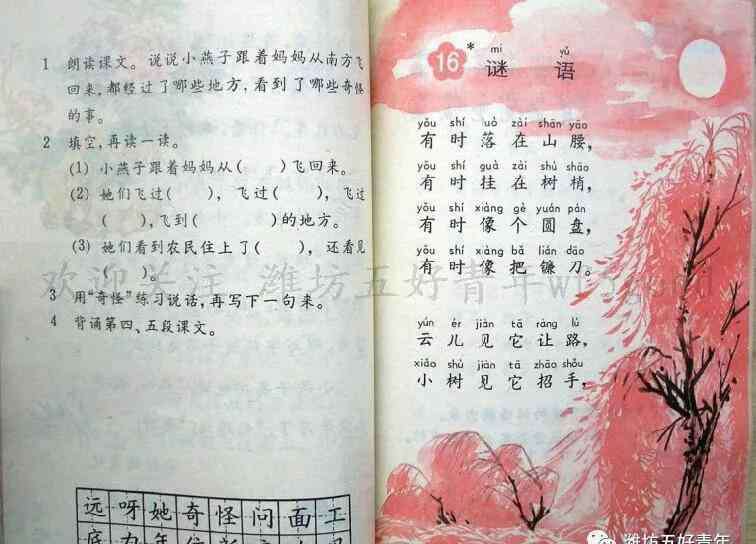 1 朗读课文。说说小燕子跟着妈妈从南方飞
回来,都经过了哪些地方,看到了哪些奇怪
的事。
2 填空,再读一读。
(1) 小燕子跟着妈妈从( )飞回来。
(2) 她们飞过( ),飞过( ),飞过
( ),飞到( )的地方。
(3) 她们看到农民住上了( ),还看见
( )。
3 用“奇怪”练习说话,再写下一句来。
4 背诵第四、五段课文。
远呀她奇怪问面工
16*
mí yǔ
谜语
yǒu shí luò zài shān yāo
有时落在山腰,
yǒu shí guà zài shù shāo
有时挂在树梢,
yǒu shí xiàng gè yuán pán
有时像个圆盘,
yǒu shí xiàng bǎ lián dāo
有时像把镰刀。
yún ér jiàn tā ràng lù
云儿见它让路,
xiǎo shù jiàn tā zhāo shǒu
小树见它招手,
欢迎关注 潍坊五好青年
潍坊五好青年